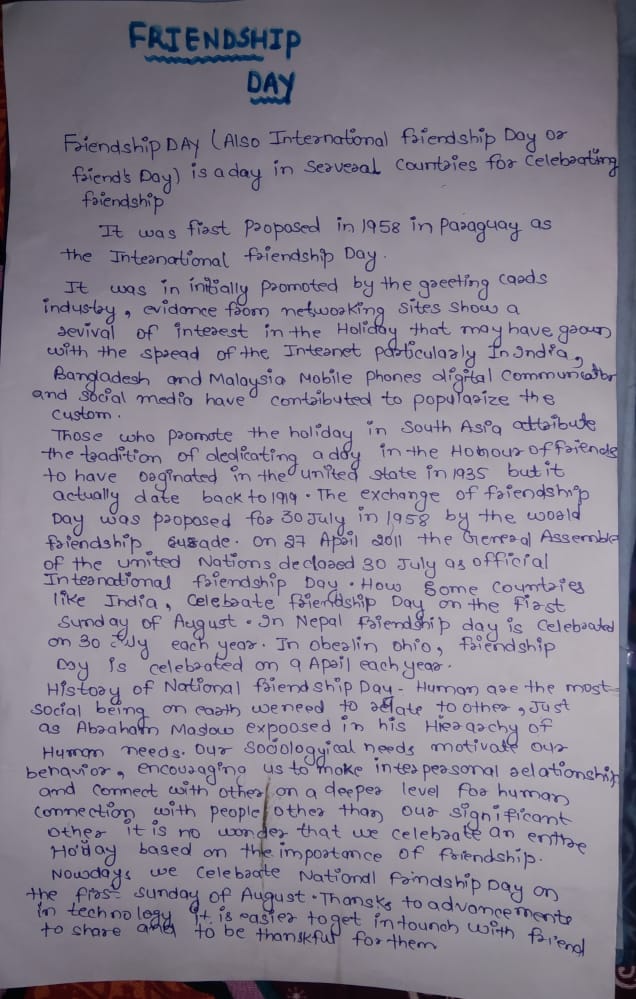 FRIENDSHIP
DAY
Friendship DAY (Also International friendship Day or
friend's Day) is a day in Serveral Countries for Celebrating
friendship
It was first Proposed in 1958 in Paraguay as
the International friendship Day.
It was in initially promoted by the greeting cards
industry, evidance from networking sites show a
revival of interest in the Holiday that may have grown
with the spread of the Internet particularly In India,
Bangladesh and Malaysia Mobile phones digital Communicatbr
and social media have contributed to popularize the
custom.
Those who promote the holiday in South Asia attribute
the tradition of dedicating a day in the Honour of friends
to have orginated in the united state in 1935 but it
actually date back to 1919. The exchange of friendship
Day was proposed for 30 July in 1958 by the world
friendship on 27 April 2011 the General Assemble
of the united Nations declared 30 July as official
International friendship Day. How some countries
like India, Celebrate friendship Day on the first
Sunday of August. In Nepal friendship day is Celebrated
on 30 July each year. In oberlin ohio, friendship
Day is celebrated on 9 April each year.
History of National friendship Day - Human are the most
social being on earth we need to relate to other, Just
as Abraham Maslow expoosed in his Hierarchy of
Human needs. our sociologyical needs motivate our
behavior, encouraging us to make interpersonal relationship
and connect with other on a deeper level for human
connection with people other than our significant
other it is no wonder that we celebrate an entire
based on the importance of friendship.
Nowdays we Celebrate National Day on
the first Sunday of August. Thansks to advancements
in technology it is easier to get in tounch with friend
to share and to be thanskful for them